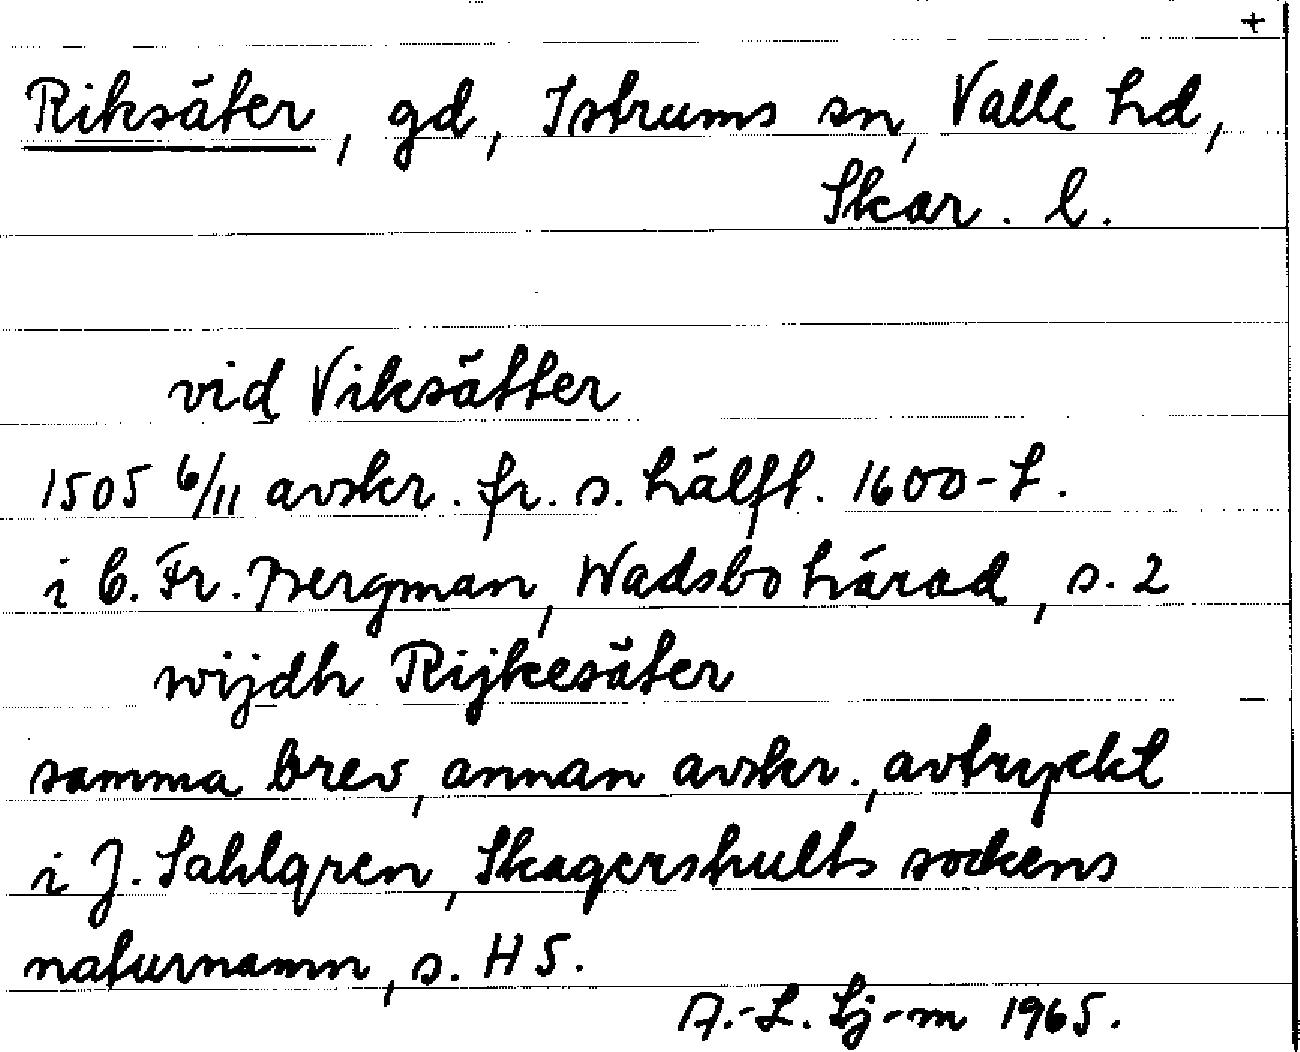 +
Riksäter, gd, Istrums sn, Valle hd,
Skar. l.
vid Viksätter
1505 6/11 avskr. fr. s. hälft. 1600-t.
i C. Fr. Bergman, Wadsbo härad, s. 2
wijdh Rijkesäter
samma brev, annan avskr., avtryckt
i J. Sahlgren, Skagershults sockens
naturnamn, s. H5.
A.-L. Lj-m 1965.